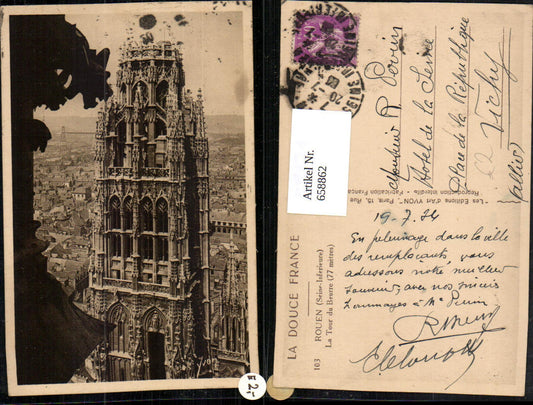 Artikel Nr.
658862
Monsieur R
Hôtel de la Seine
Place de la République
Vichy
Allier
"Les Editions d'Art YVON", Paris, 15, Rue
Reproduction interdite - Fabrication Française
LA DOUCE FRANCE
103 ROUEN (Seine-Inférieure)
La Tour du Beurre (77 mètres)
19-7.34
En pèlerinage dans la ville
des remplaçants, vous
adressons notre meilleur
souvenir, avec nos
hommages à Me
2,-